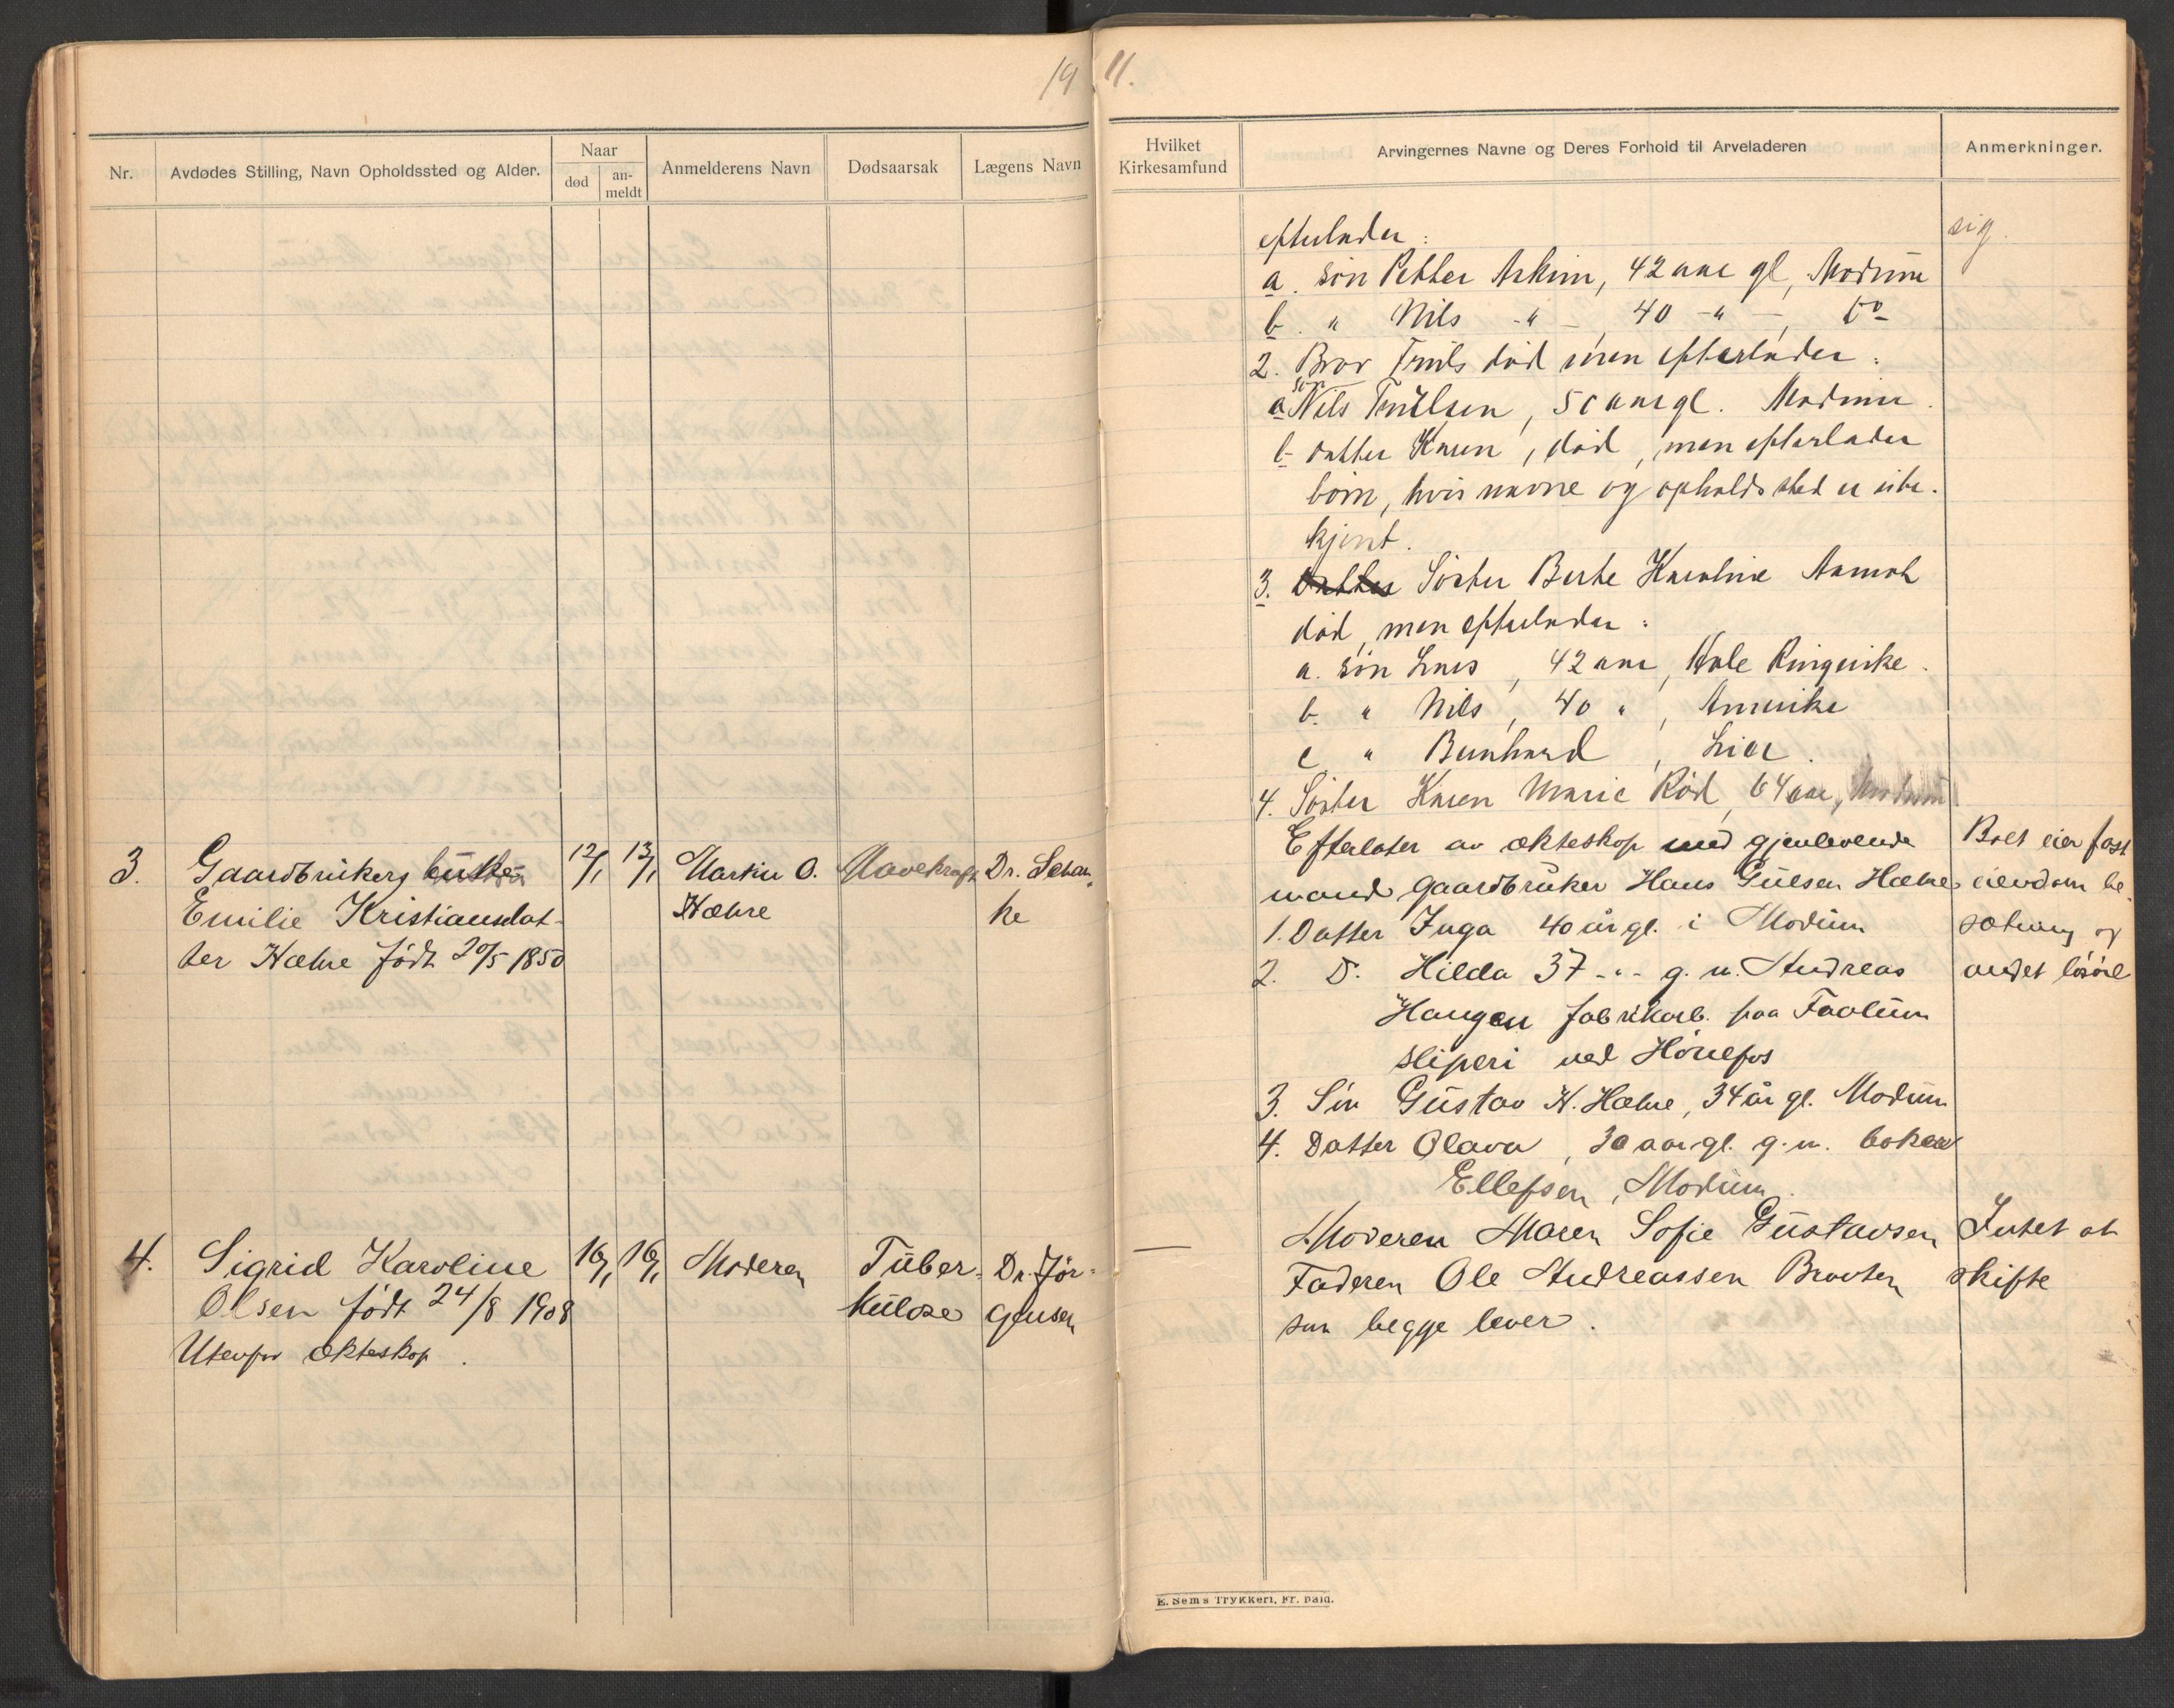 19
11.
Nr.
Avdødes Stilling, Navn Opholdssted og Alder.
Naar
død
an-
meldt
Anmelderens Navn
Dødsaarsak
Lægens Navn
3.
Gaardbrukers
Emilie Kristiansdat-
ter Hæhre født 20/5 1850
12/1
13/1
Martin O.
Hæhre
Mavekræft
Dr. Schan-
ke
4.
Sigrid Karoline
Olsen født 24/8 1908
Utenfor ekteskap.
16/1
16/1
Moderen
Tuber-
kulose
Dr. Jør-
gensen
Hvilket
Kirkesamfund
Arvingernes Navne og Deres Forhold til Arveladeren
Anmerkninger.
efterlader:
sig.
a. søn Petter Askim, 42 aar gl, Modum
b. " Nils -"-, 40 -"-, do
2. Bror Truls død men efterlader:
a søn Nils Trulsen, 50 aar gl. Modum.
b datter Karen, død, men efterlader
børn, hvis navne og opholdssted er ube-
kjent.
3. Datter Søster Berte Karoline Aamot
død, men efterlader:
a. søn Lars, 42 aar, Hole Ringerike.
b. " Nils, 40 ", Amerika
c " Bernhard, Lier.
4. Søster Karen Marie Rød, 64 aar, Modum
Efterlater av ekteskap med gjenlevende
mand gaardbruker Hans Gulsen Hæhre
1. Datter Inga 40 år gl. i Modum
2. D. Hilda 37 -"- g. m. Andreas
Haugen fabrikarb. paa
sliperi ved Hønefos
3. Søn Gustav H. Hæhre, 34 år gl. Modum
4. Datter Olava, 30 aar gl. g. m. baker
Ellefsen, Modum.
Boet eier fast
eiendom be-
sætning og
andet løsøre
Moderen Maren Sofie Gustavsen
Faderen Ole Andreassen Braaten
som begge lever.
Intet at
skifte
E. Sem's Trykkeri, Fr. hald.